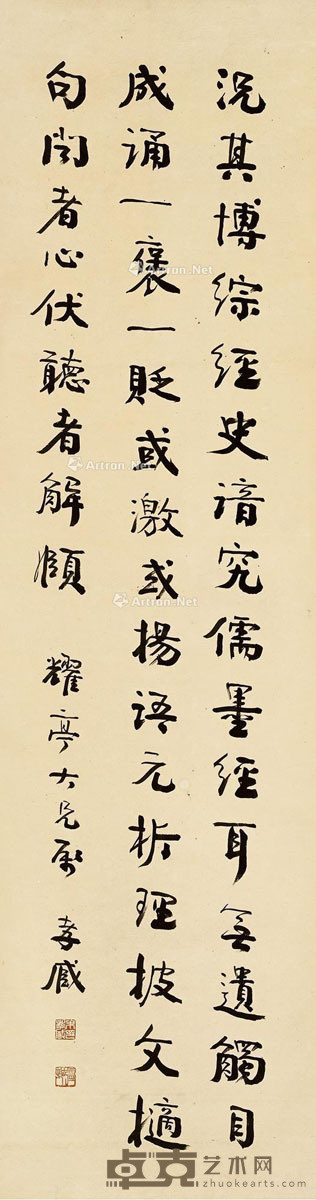 况其博综經史諳究儒墨經耳無遺觸目
成誦一褒一貶或激或揚语元析理披文擿
句聞者心伏聽者解頤
耀亭大兄属 孝臧
Artron.Net
Artron.Net
Artron.Net
卓克艺术网
zhuokearts.com